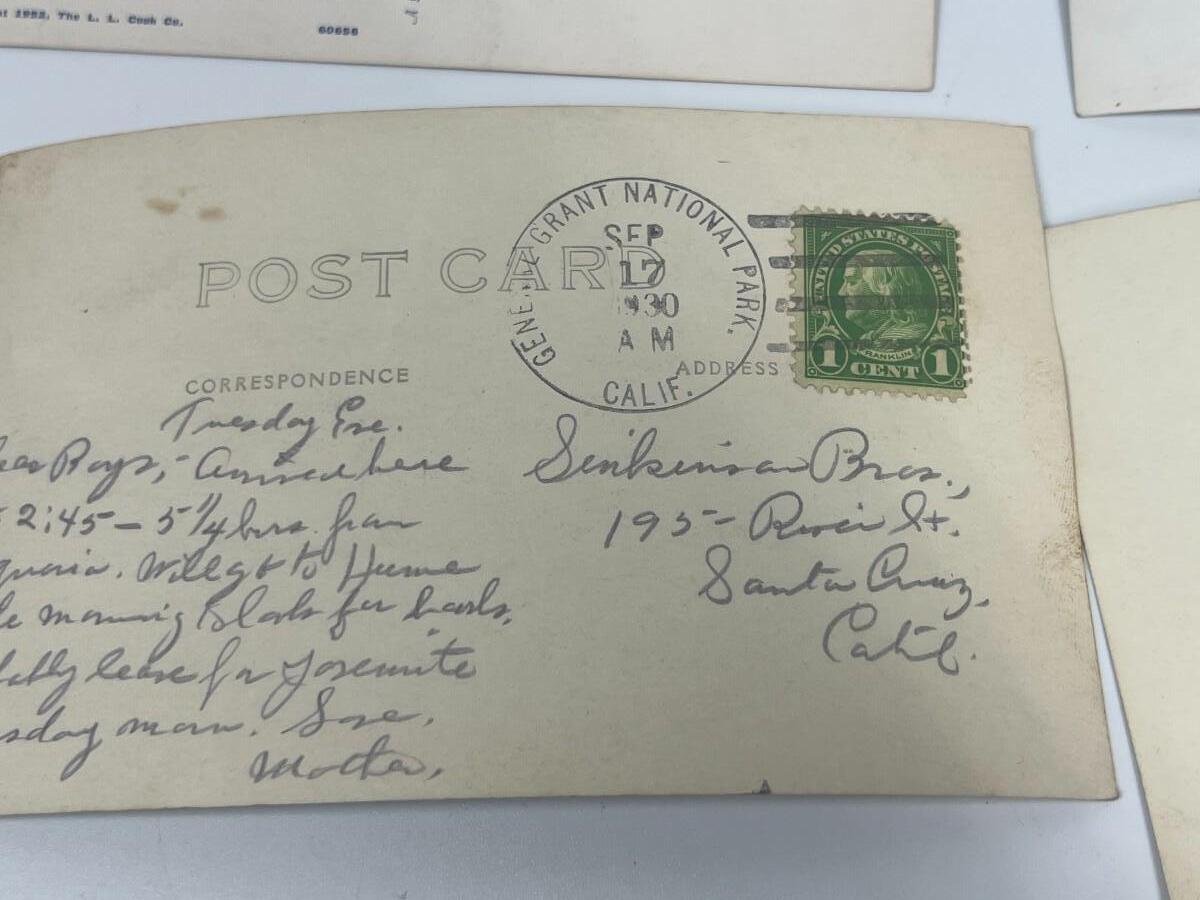 1952, The L. L. Cook Co.
60656
POST CARD
GENERAL GRANT NATIONAL PARK.
SEP
17
1930
A M
CALIF.
UNITED STATES POSTAGE
FRANKLIN
1 CENT 1
CORRESPONDENCE
ADDRESS
Tuesday Eve.
Boys, - Arrived here
2:45 - 5 1/4 hrs. from
Will go to Hume
morning
leave for Yosemite
morn. Love,
Mother.
Bros.,
195 - River St.
Santa Cruz,
Calif.